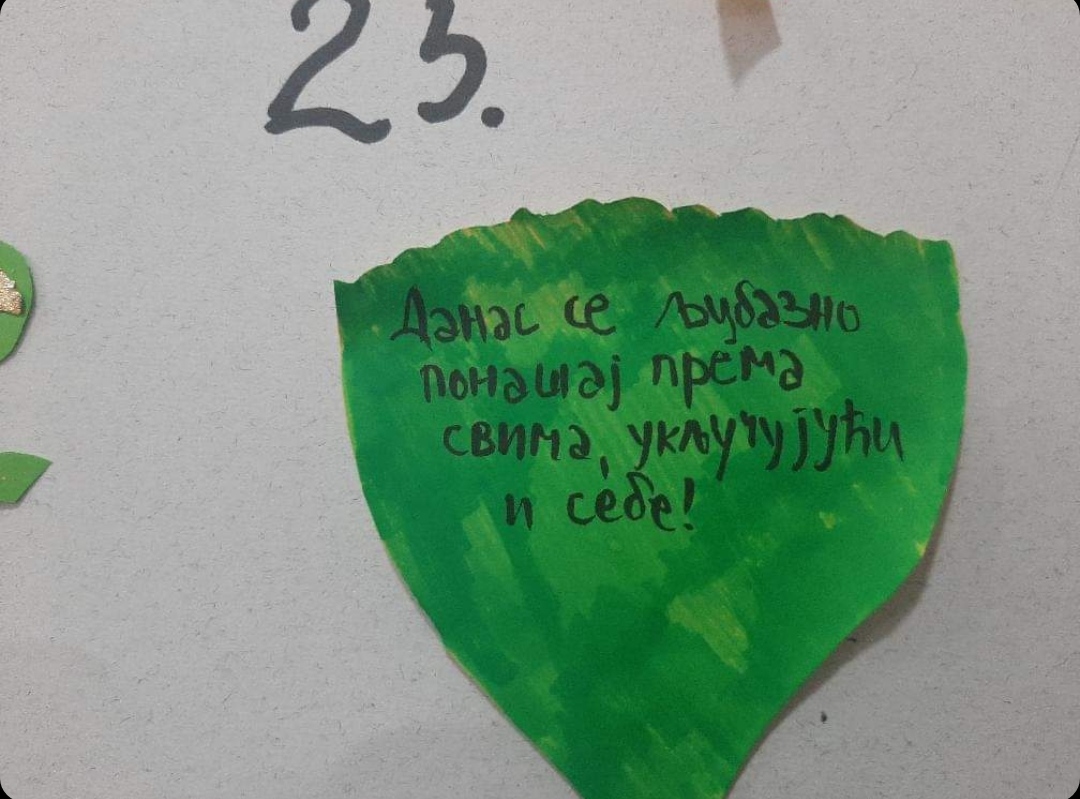 23.
Данас се љубазно
понашај према
свима, укључујући
и себе!